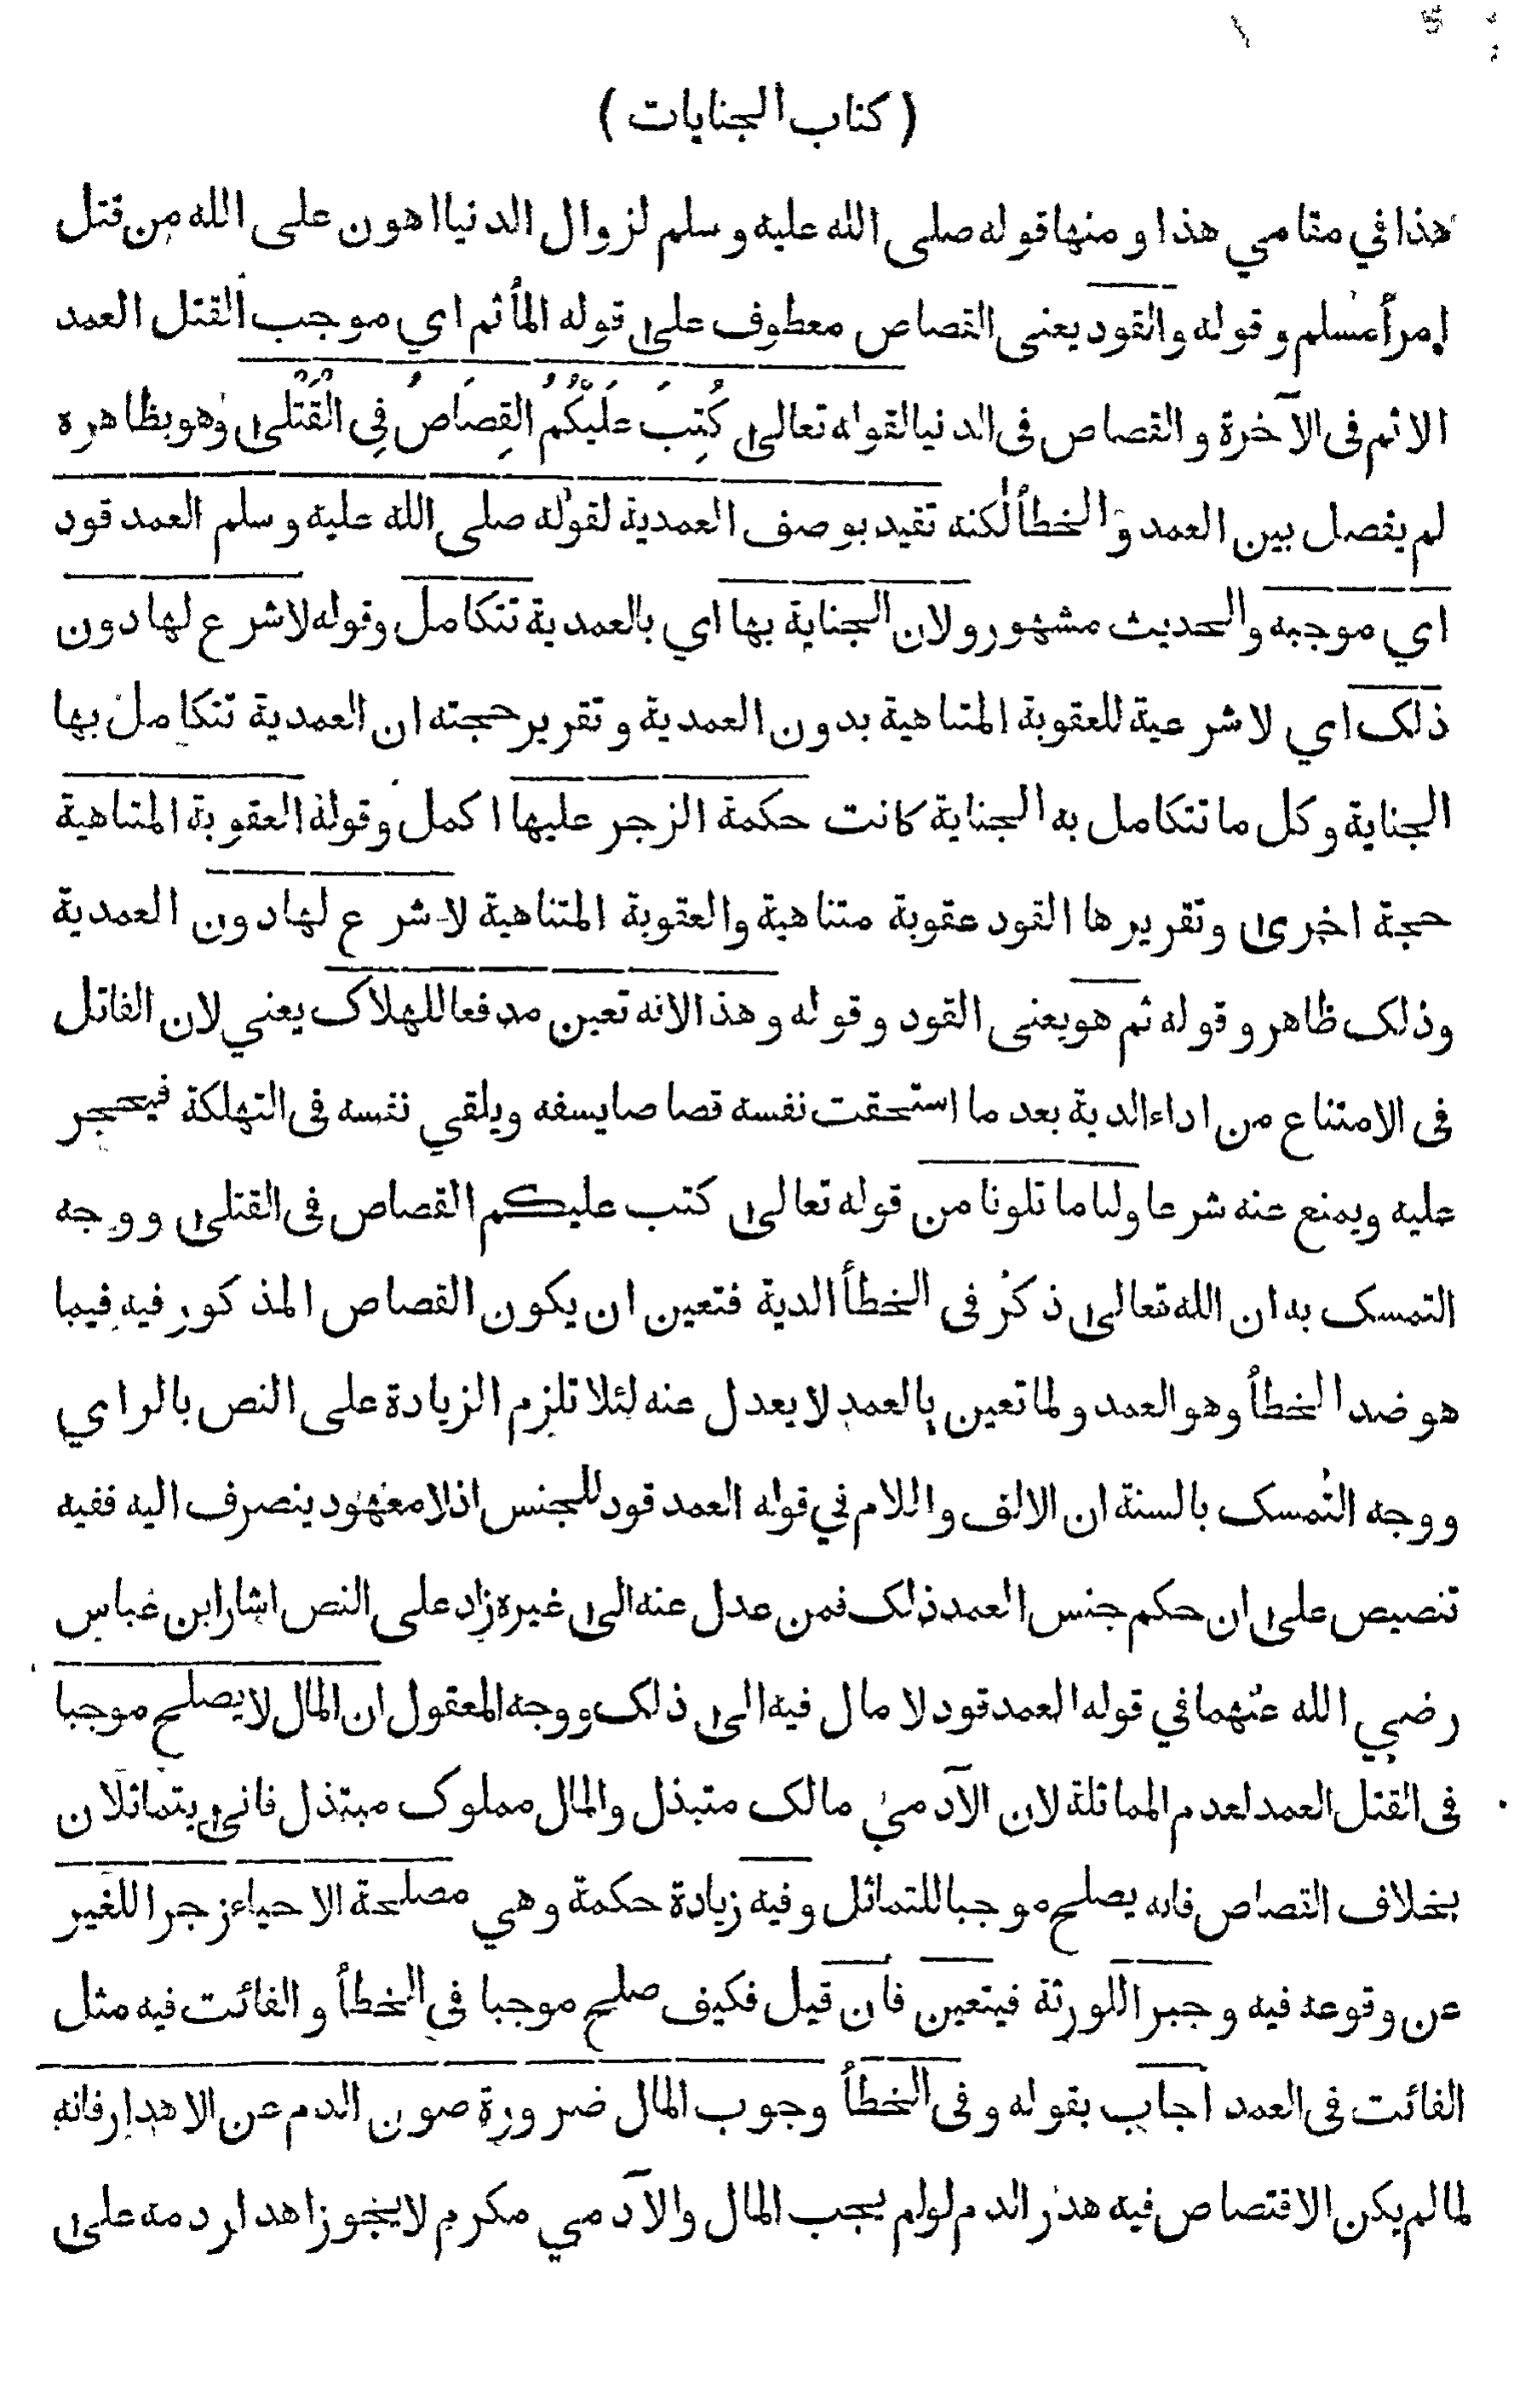 ( كتاب الجنايات )
هذا في مقامي هذا و منها قوله صلى الله عليه و سلم لزوال الدنيا اهون على الله من قتل
امرأ مسلم و قوله والقود يعنى القصاص معطوف على قوله المأثم اي موجب القتل العمد
الاثم فى الآخرة و القصاص فى الدنيا لقوله تعالى كُتِبَ عَلَيْكُمُ القِصَاصُ فِي القَتْلى وهو بظاهره
لم يفصل بين العمد والخطأ لكنه تقيد بوصف العمدية لقوله صلى الله عليه و سلم العمد قود
اي موجبه والحديث مشهور ولان الجناية بها اي بالعمدية تتكامل وقوله لا شرع لها دون
ذلك اي لا شرعية للعقوبة المتناهية بدون العمدية و تقرير حجته ان العمدية تتكامل بها
الجناية وكل ما تتكامل به الجناية كانت حكمة الزجر عليها اكمل وقوله العقوبة المتناهية
حجة اخرى وتقريرها القود عقوبة متناهية والعقوبة المتناهية لا شرع لها دون العمدية
وذلك ظاهر و قوله ثم هو يعنى القود و قوله و هذا لانه تعين مدفعا للهلاك يعني لان القاتل
فى الامتناع من اداء الدية بعد ما استحقت نفسه قصاصا يسفه ويلقي نفسه فى التهلكة فيحجر
عليه ويمنع عنه شرعا ولنا ما تلونا من قوله تعالى كتب عليكم القصاص فى القتلى و وجه
التمسك به ان الله تعالى ذكر فى الخطأ الدية فتعين ان يكون القصاص المذكور فيه فيما
هو ضد الخطأ وهو العمد ولما تعين بالعمد لا يعدل عنه لئلا تلزم الزيادة على النص بالراي
و وجه التمسك بالسنة ان الالف واللام في قوله العمد قود للجنس اذ لا معهود ينصرف اليه ففيه
تنصيص على ان حكم جنس العمد ذلك فمن عدل عنه الى غيره زاد على النص اشار ابن عباس
رضي الله عنهما في قوله العمد قود لا مال فيه الى ذلك و وجه المعقول ان المال لا يصلح موجبا
فى القتل العمد لعدم المماثلة لان الآدمي مالك متبذل والمال مملوك مبتذل فانى يتماثلان
بخلاف القصاص فانه يصلح موجبا للتماثل و فيه زيادة حكمة و هي مصلحة الاحياء زجرا للغير
عن وقوعه فيه و جبرا للورثة فيتعين فان قيل فكيف صلح موجبا فى الخطأ و الفائت فيه مثل
الفائت فى العمد اجاب بقوله و فى الخطأ وجوب المال ضرورة صون الدم عن الاهدار فانه
لما لم يكن الاقتصاص فيه هدر الدم لو لم يجب المال والآدمي مكرم لا يجوز اهدار دمه على